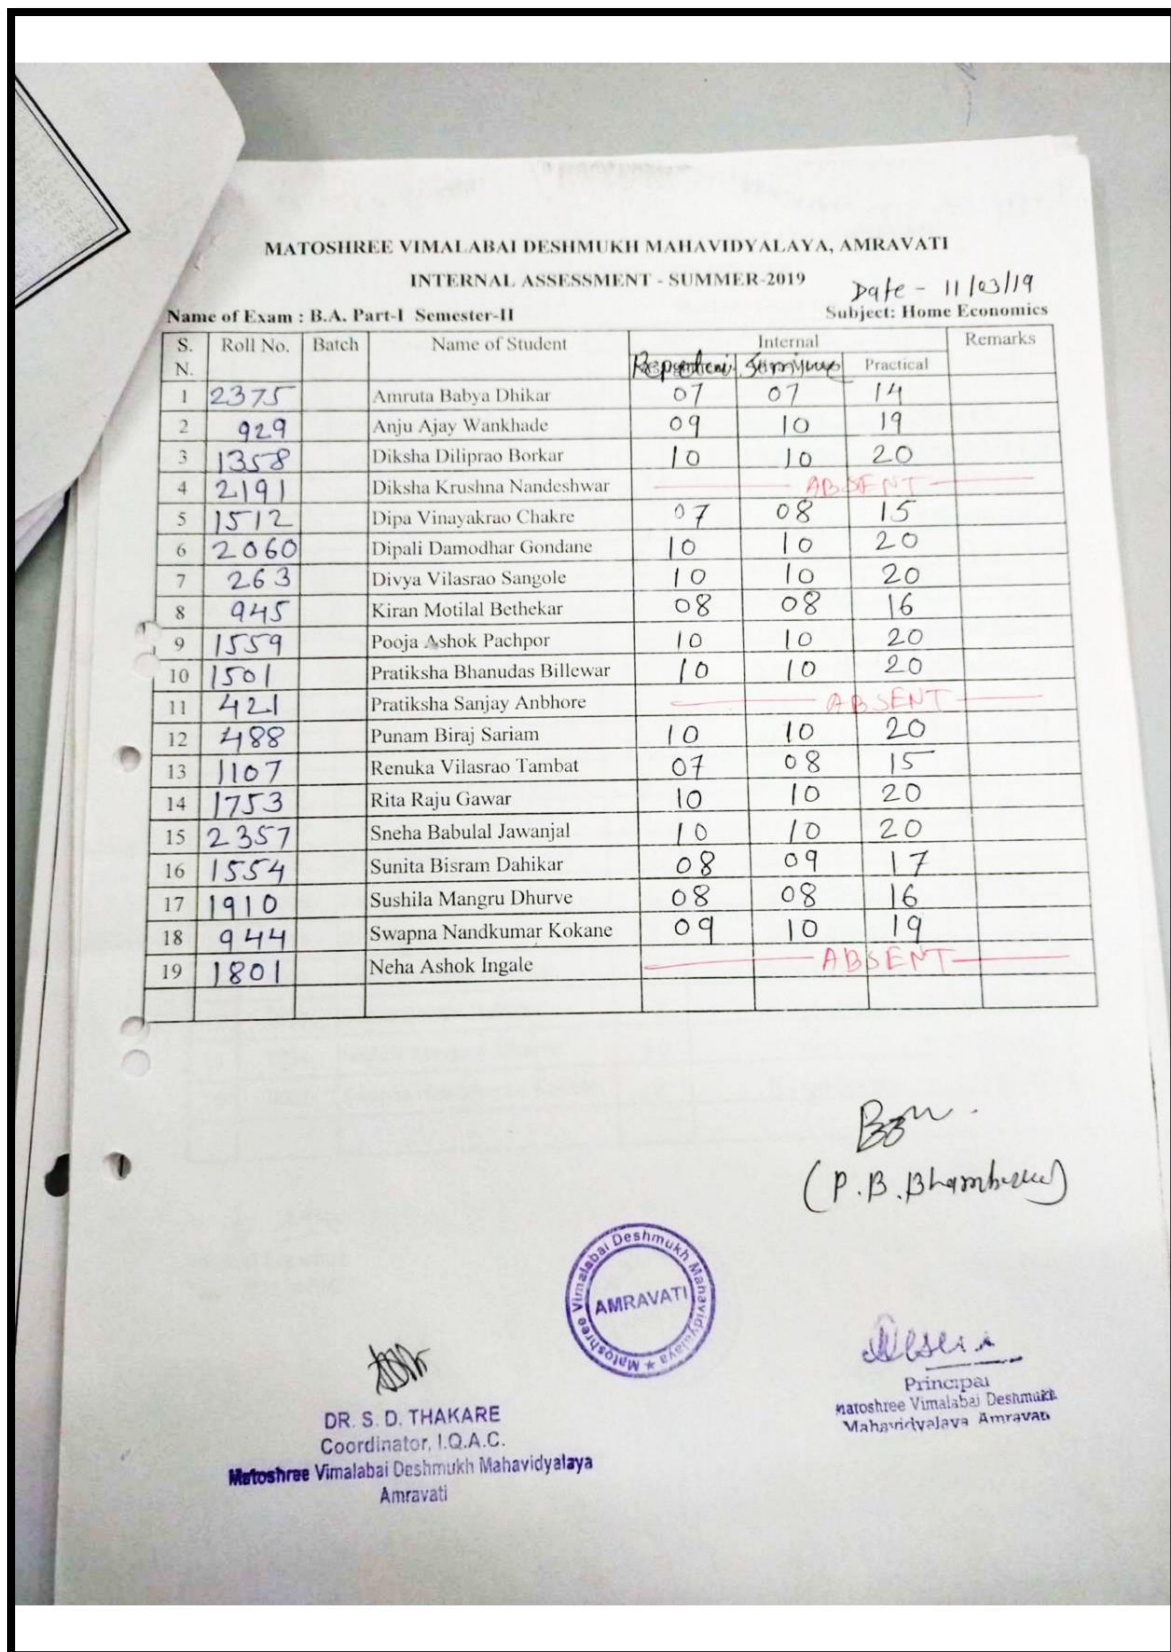 MATOSHREE VIMALABAI DESHMUKH MAHAVIDYALAYA, AMRAVATI
INTERNAL ASSESSMENT - SUMMER-2019
Date - 11/03/19
Name of Exam : B.A. Part-I Semester-II Subject: Home Economics
S. N. Roll No. Batch Name of Student Internal Remarks
Practical
1 2375 Amruta Babya Dhikar 07 07 14
2 929 Anju Ajay Wankhade 09 10 19
3 1358 Diksha Diliprao Borkar 10 10 20
4 2191 Diksha Krushna Nandeshwar ABSENT
5 1512 Dipa Vinayakrao Chakre 07 08 15
6 2060 Dipali Damodhar Gondane 10 10 20
7 263 Divya Vilasrao Sangole 10 10 20
8 945 Kiran Motilal Bethekar 08 08 16
9 1559 Pooja Ashok Pachpor 10 10 20
10 1501 Pratiksha Bhanudas Billewar 10 10 20
11 421 Pratiksha Sanjay Anbhore ABSENT
12 488 Punam Biraj Sariam 10 10 20
13 1107 Renuka Vilasrao Tambat 07 08 15
14 1753 Rita Raju Gawar 10 10 20
15 2357 Sneha Babulal Jawanjal 10 10 20
16 1554 Sunita Bisram Dahikar 08 09 17
17 1910 Sushila Mangru Dhurve 08 08 16
18 944 Swapna Nandkumar Kokane 09 10 19
19 1801 Neha Ashok Ingale ABSENT
(P.B.
Matoshree Vimalabai Deshmukh Mahavidyalaya
AMRAVATI
Principal
Matoshree Vimalabai Deshmukh
Mahavidyalaya Amravati
DR. S. D. THAKARE
Coordinator, I.Q.A.C.
Matoshree Vimalabai Deshmukh Mahavidyalaya
Amravati